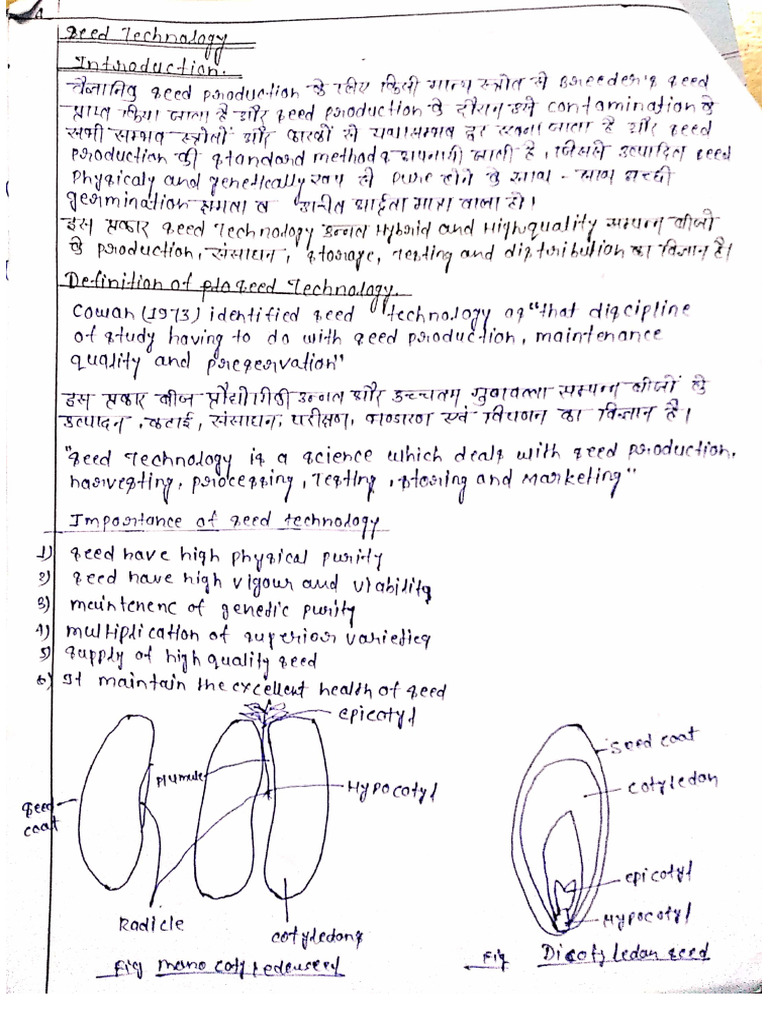 Seed Technology
Introduction.
वैज्ञानिक seed production के लिए किसी मान्य स्त्रोत से Breeder's seed
प्राप्त किया जाता है और seed production के दौरान उसे contamination के
सभी सम्भव स्त्रोतों और कारकों से यथासम्भव दूर रखा जाता है और seed
production की standard methods अपनायी जाती है, जिससे उत्पादित seed
Physicaly and genetically रूप से pure होने के साथ - साथ अच्छी
germination क्षमता व उचित आर्द्रता मात्रा वाला हो।
इस प्रकार seed Technology उन्नत Hybrid and High quality सम्पन्न बीजो
के production, संसाधन, storage, Testing and distribution का विज्ञान है।
Definition of seed Technology.
Cowan (1973) identified seed technology as "that discipline
of study having to do with seed production, maintenance
quality and preservation"
इस प्रकार बीज प्रौद्योगिकी उन्नत और उच्चतम गुणवत्ता सम्पन्न बीजों के
उत्पादन, कटाई, संसाधन, परीक्षण, भण्डारण एवं विपणन का विज्ञान है।
"Seed Technology is a science which deals with seed production,
harvesting, processing, Testing, storing and marketing"
Importance of seed technology
1) seed have high physical purity
2) seed have high vigour and viability
3) maintenenc of genedic purity
4) multiplication of superior varieties
5) supply of high quality seed
6) It maintain the excellent health of seed
epicotyl
seed coat
Plumule
cotyledan
Hypocotyl
seed
coat
epicotyl
Hypocotyl
Radicle
cotyledons
Fig Mono cotyledeuseed
Fig Dicotyledan seed